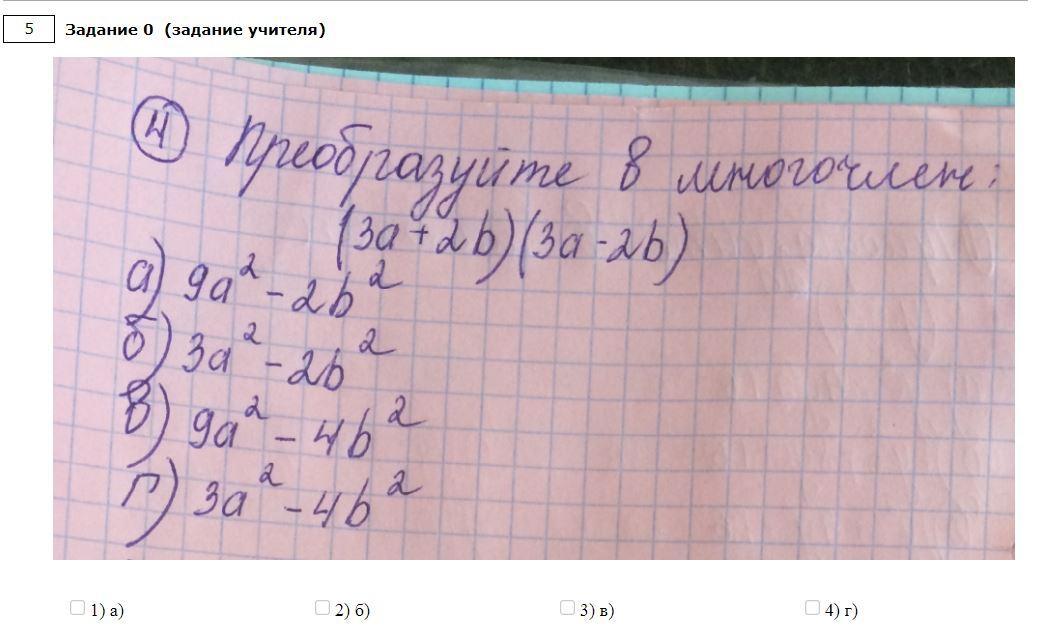 5 Задание 0 (задание учителя)
4 Преобразуйте в многочлен:
(3a+2b)(3a-2b)
а) 9a²-2b²
б) 3a²-2b²
в) 9a²-4b²
г) 3a²-4b²
1) а) 2) б) 3) в) 4) г)